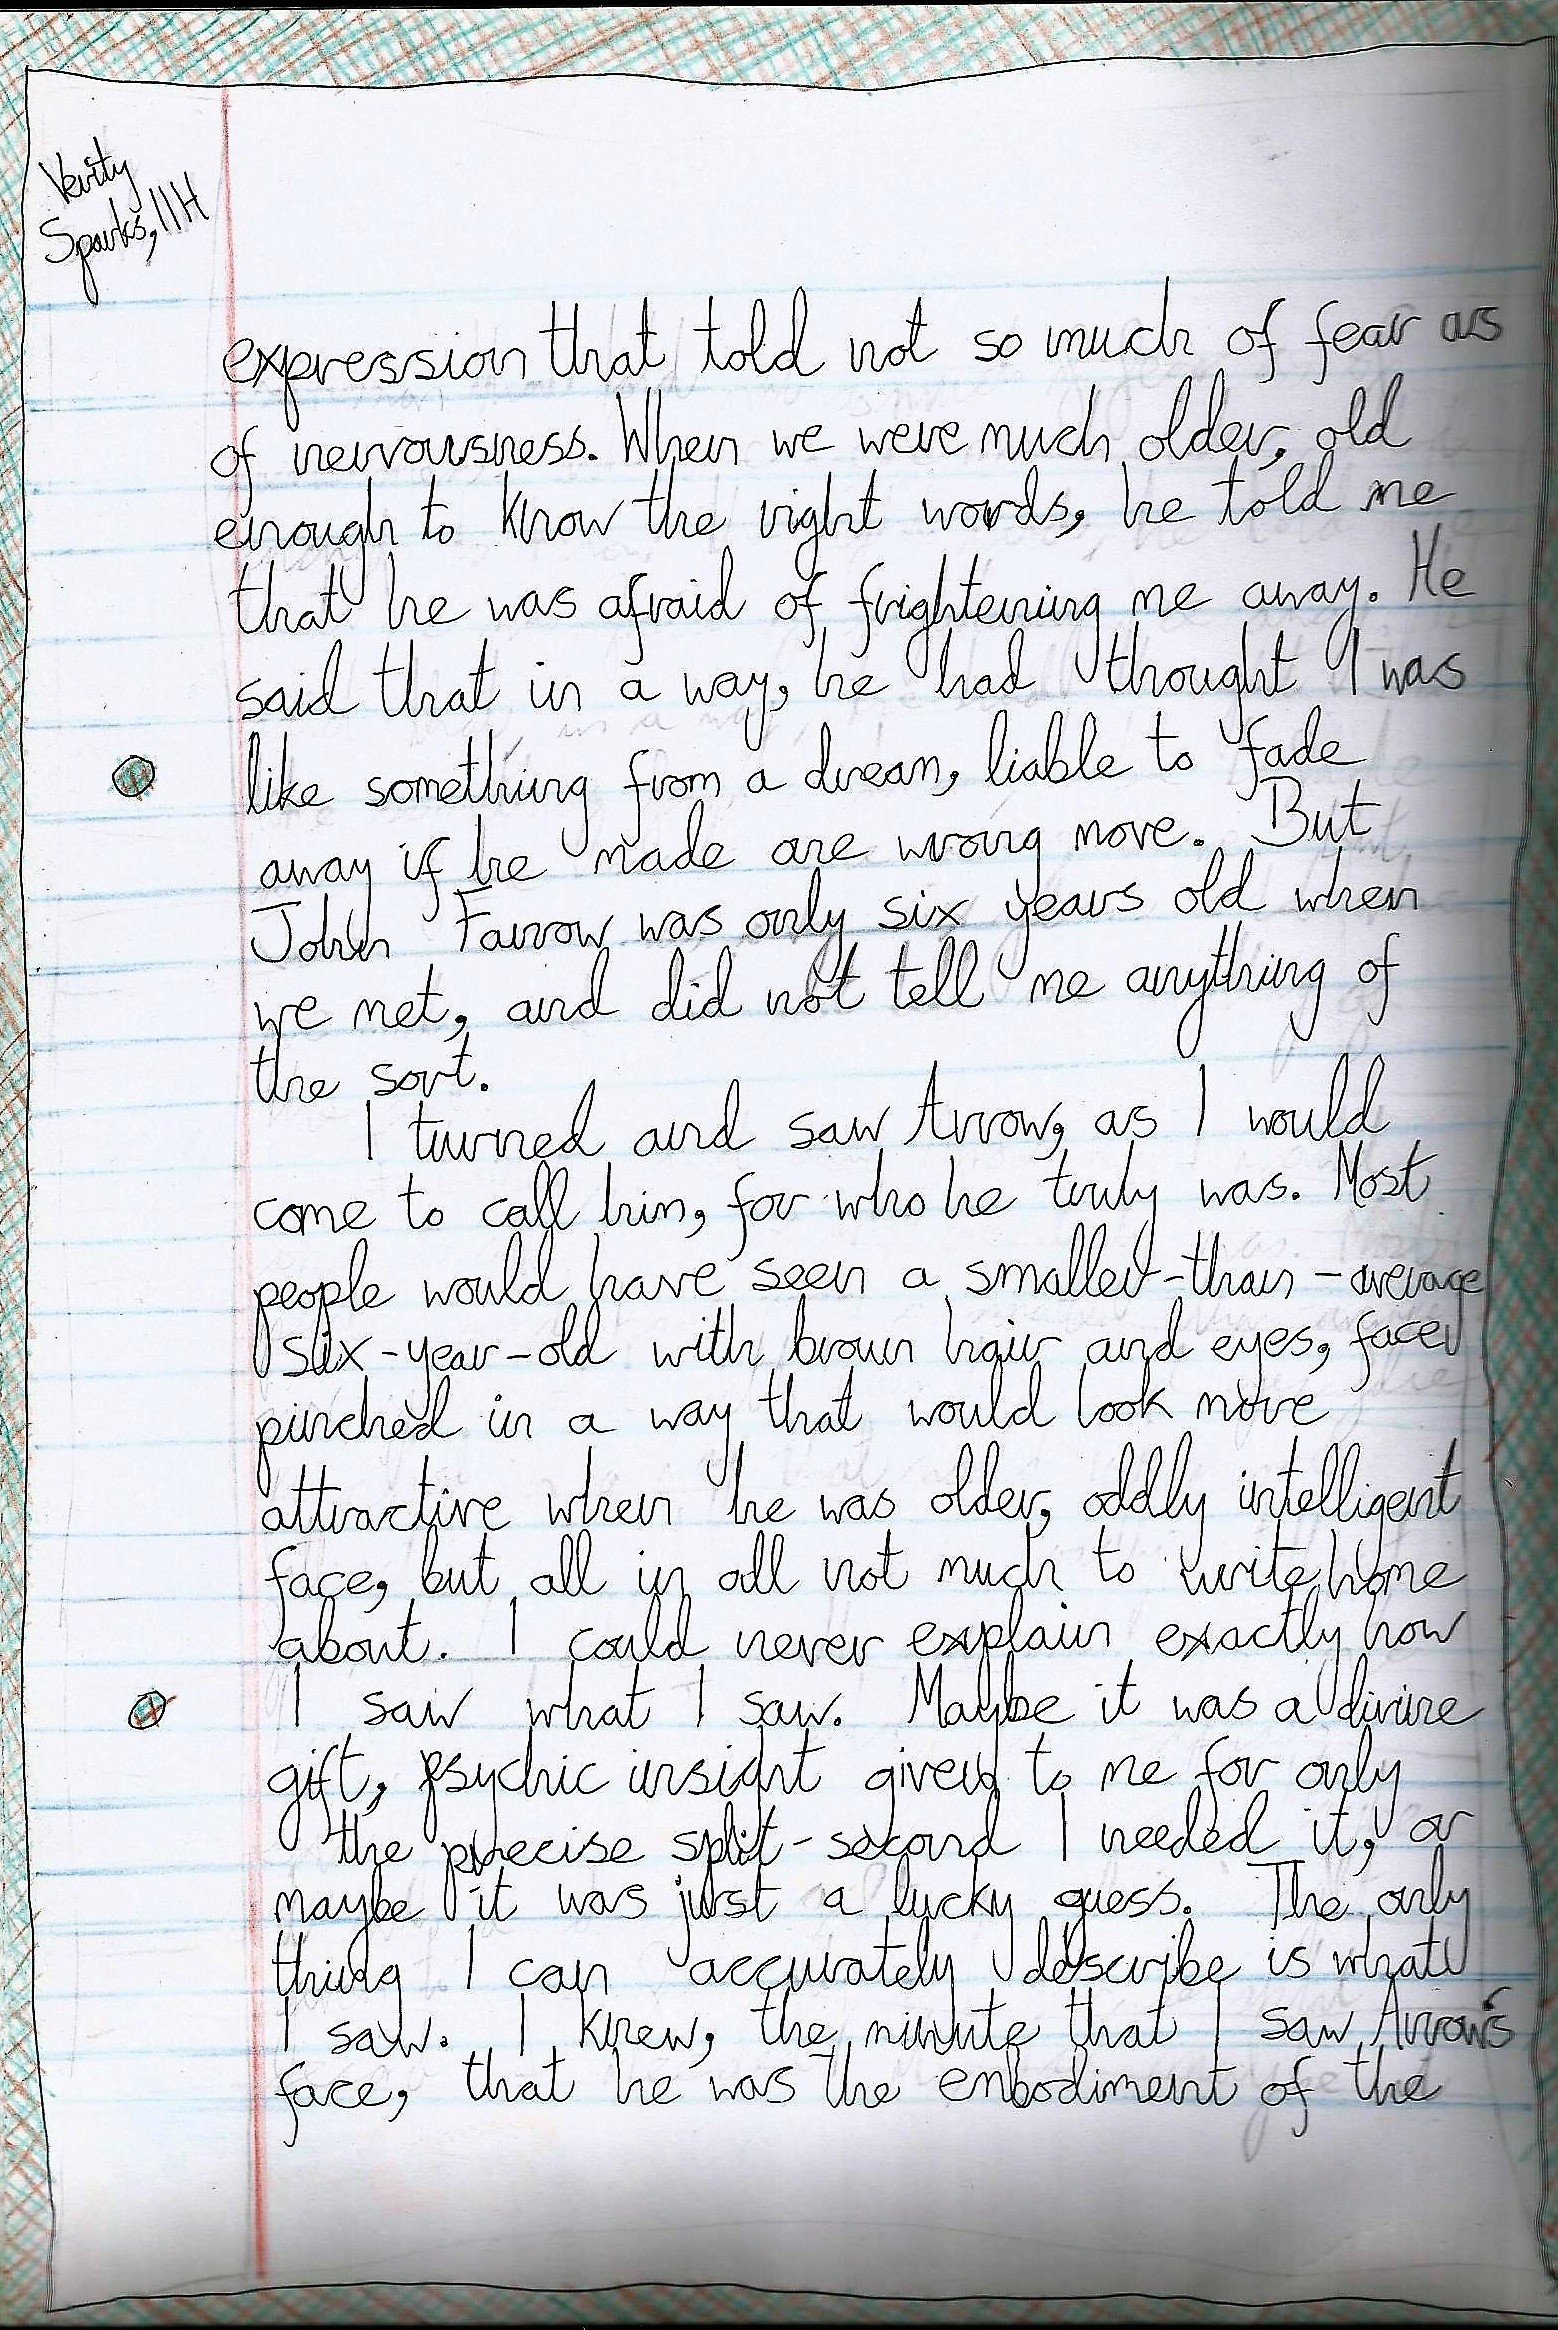 Verity
Sparks, 11H
expression that told not so much of fear as
of nervousness. When we were much older, old
enough to know the right words, he told me
that he was afraid of frightening me away. He
said that in a way, he had thought I was
like something from a dream, liable to fade
away if he made one wrong move. But
John Farrow was only six years old when
we met, and did not tell me anything of
the sort.
I turned and saw Arrow, as I would
come to call him, for who he truly was. Most
people would have seen a smaller-than-average
six-year-old with brown hair and eyes, face
pinched in a way that would look more
attractive when he was older, oddly intelligent
face, but all in all not much to write home
about. I could never explain exactly how
I saw what I saw. Maybe it was a divine
gift, psychic insight given to me for only
the precise split-second I needed it, or
maybe it was just a lucky guess. The only
thing I can accurately describe is what
I saw. I knew, the minute that I saw Arrow's
face, that he was the embodiment of the